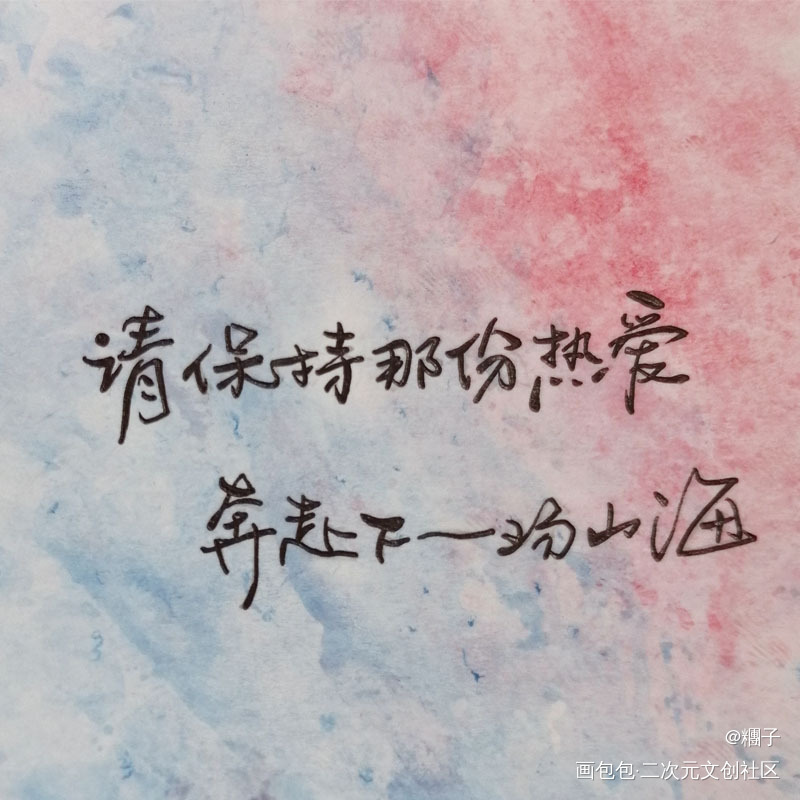 请保持那份热爱
奔赴下一场山海
@糰子
画包包·二次元文创社区